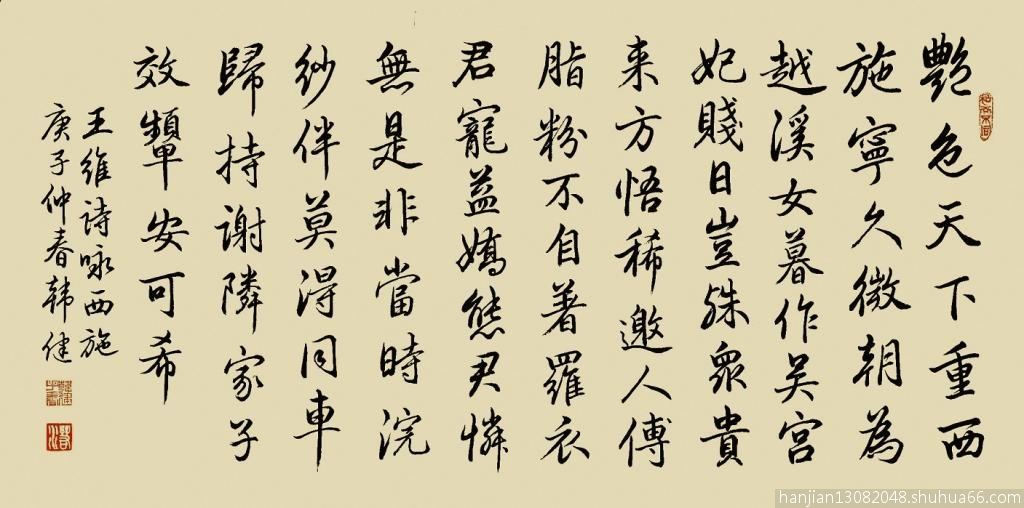 艷色天下重西
施寧久微朝為
越溪女暮作吴宫
妃賤日豈殊眾貴
来方悟稀邀人傅
脂粉不自著羅衣
君寵益嬌態君憐
無是非當時浣
紗伴莫得同車
歸持謝隣家子
效顰安可希
王維詩咏西施
庚子仲春韩健
hanjian13082048.shuhua66.com